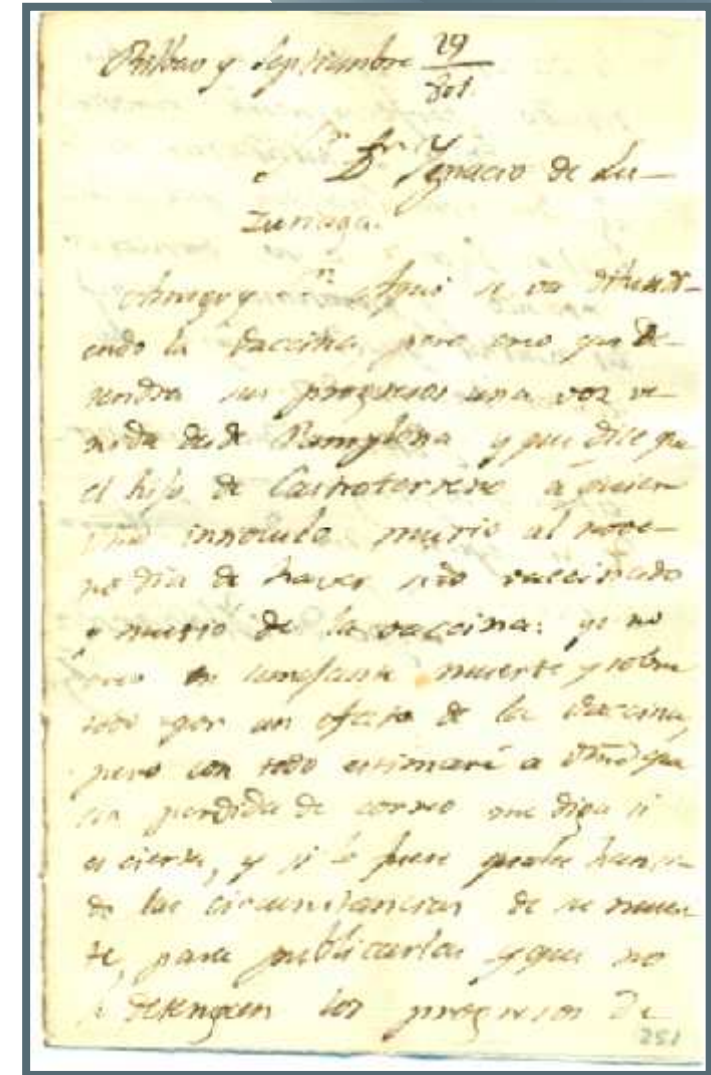 Bilbao y Septiembre 29
801
Sr Dn Ignacio de Lu-
zuriaga.
Amigo y Aqui se va difundi-
endo la vaccina, pero creo que de-
tendra sus progresos una voz ve-
nida desde Pamplona y que dice qu
el hijo de Castroterreño a quien
Vmd innoculo murio al nove-
no dia de haver sido vaccinado
y murio de la vaccina: yo no
creo en semejante muerte y sobre
todo por un efecto de la vaccina,
pero con todo estimaré a Vmd que
sin perdida de correo me diga si
es cierta, y si lo fuere han si-
do las circunstancias de su muer-
te, para publicarlas y que no
se detengan los progresos de
251